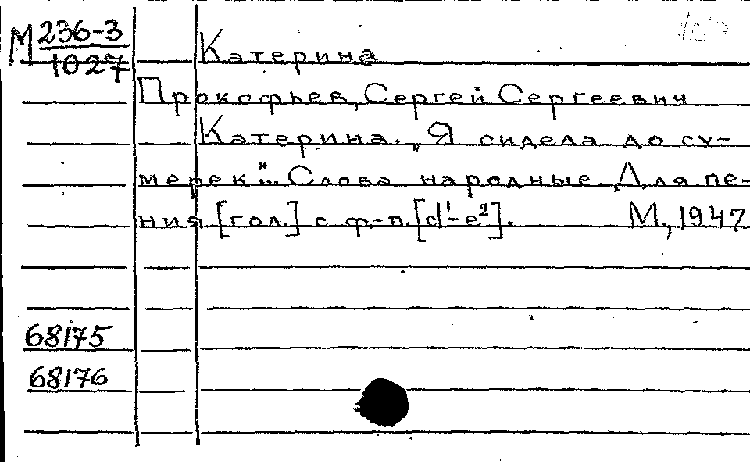 М 236-3
1027
Катерина
Прокофьев, Сергей Сергеевич
Катерина. „Я сидела до су-
мерек"... Слова народные. Для пе-
ния [гол.] с ф.-п. [d¹-e²]. М., 1947
68175
68176